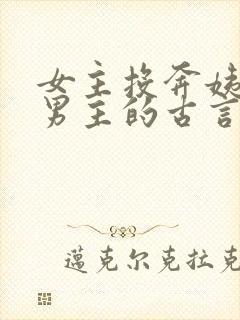 女主投奔姨
男主的古言
蓝克尔克拉克